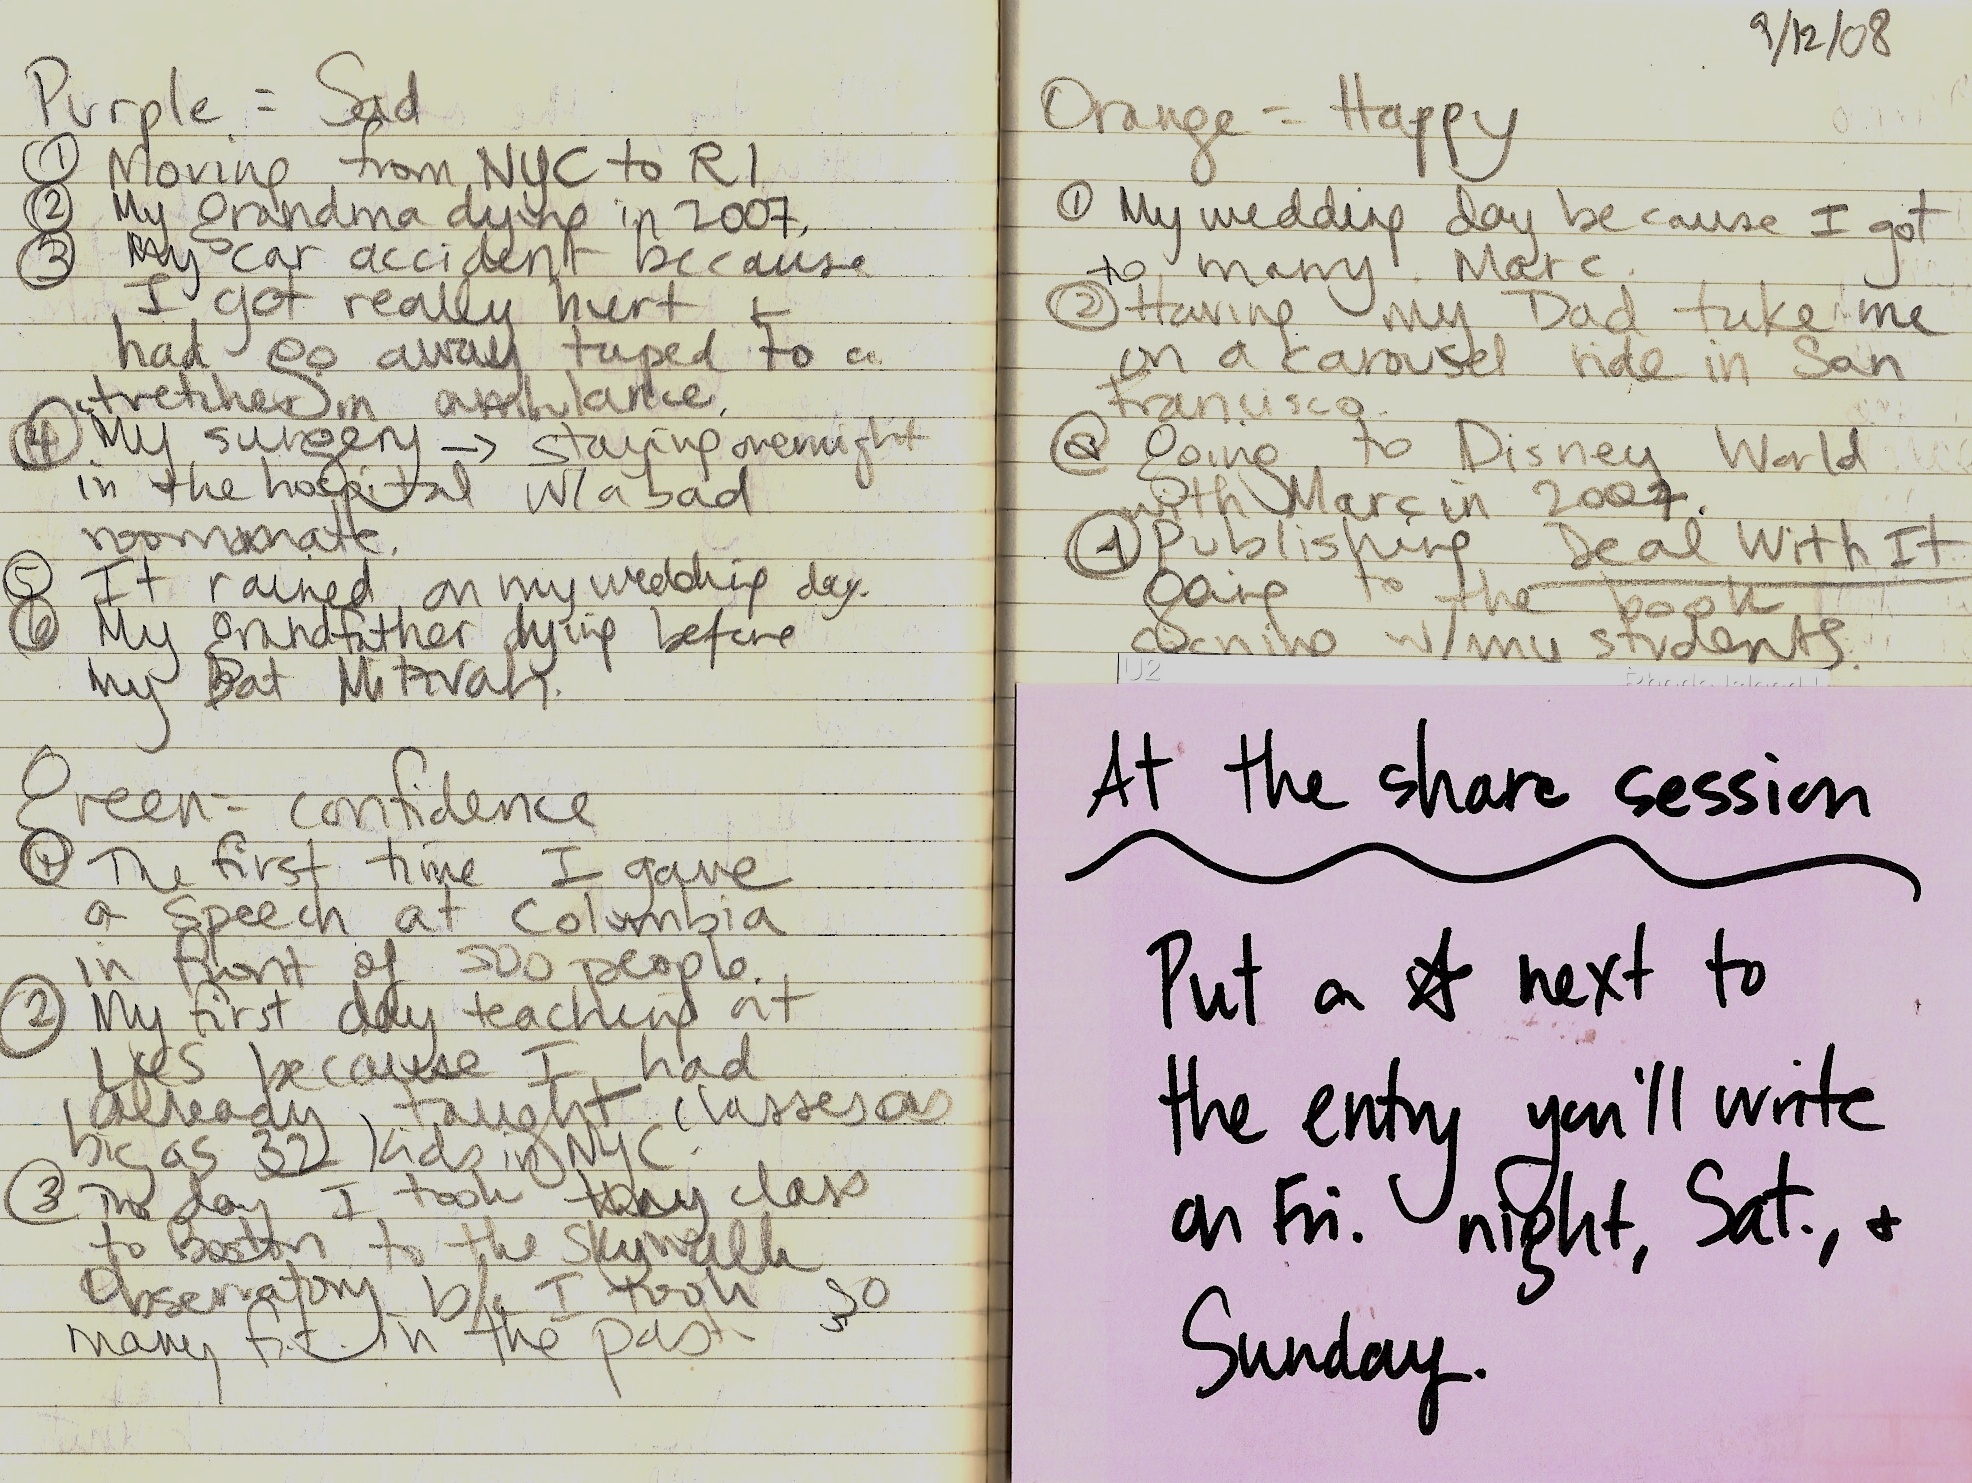 Purple = Sad
① Moving from NYC to RI
② My grandma dying in 2007.
③ My car accident because
I got really hurt +
had go away taped to a
stretcher in ambulance.
④ My surgery → staying overnight
in the hospital w/a bad
roommate.
⑤ It rained on my wedding day.
⑥ My grandfather dying before
my Bat Mitzvah.
Green = confidence
① The first time I gave
a speech at Columbia
in front of 500 people.
② My first day teaching at
because I had
already taught classes as
big as 32 kids in NYC.
③ The day I took my class
to Boston to the Skywalk
Observatory b/c I took so
many f.t. in the past.
9/12/08
Orange = Happy
① My wedding day because I got
to marry Marc.
② Having my Dad take me
on a carousel ride in San
Francisco.
③ going to Disney World
with Marc in 2007.
④ Publishing Deal With It
going to the book
w/my students.
U2
Rhode Island
At the share session
Put a ☆ next to
the entry you'll write
on Fri. night, Sat., +
Sunday.